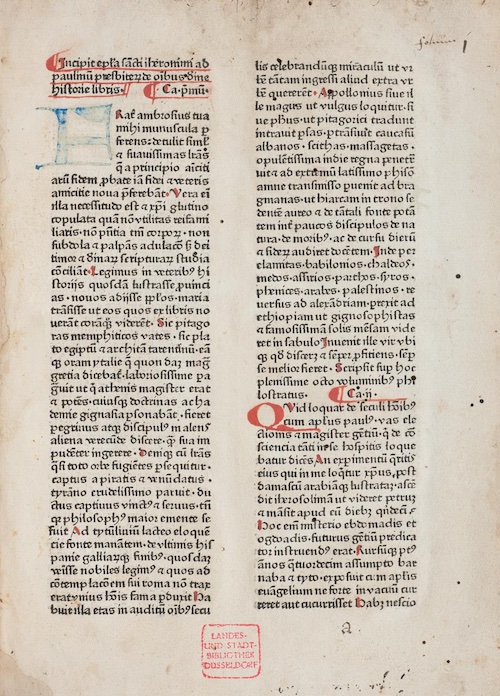 solinum 1
Incipit epl̃a sãcti iheronimi ad
paulinũ presbiteꝝ de oĩbus diuine
historie libris. Ca. p̃mũ.
Frat̃ ambrosius tua
mihi munuscula ꝑ
ferens detulit simĺ
⁊ suauissimas lr̃as
q̃ a principio aĩciti
arũ fidem ꝓbate iã fidei ⁊ veteris
amicitie noua p̃ferebãt. Vera eĩ
illa necessitudo est ⁊ xp̃i glutino
copulata quã nõ vtilitas rei fami
liaris. nõ p̃ntia tm̃ corpoꝝ. non
subdola ⁊ palpãs adulacõ sꝫ dei
timor ⁊ diĩaꝝ scripturaꝝ studia
cõciliãt. Legimus in veteribꝰ hi
storijs quosdã lustrasse ꝓuinci
as. nouos adijsse pp̃los. maria
trãsisse ut eos quos ex libris no
uerãt coraꝫ viderẽt. Sic pitago
ras memphiticos vates. sic pla
to egiptũ ⁊ architã tarentinũ. eã
qꝫ oram ytalie q̃ quondaꝫ mag
gretia dicebat̃. laboriosissime pa
grauit ut q̃ athenis magister erat
⁊ potẽs. cuiusqꝫ doctrinas acha
demie gignasia ꝑsonabãt. fieret
ꝑegrinus atqꝫ discipulꝰ malens
aliena verecũde discere. q̃ꝫ sua im
pudẽter ingerere. Deniqꝫ cũ lr̃as
q̃si toto orbe fugiẽtes ꝑsequitur.
captus a piratis ⁊ venũdatus.
tyrãno crudelissimo paruit. du
ctus captiuus vinctꝰ ⁊ seruus. tñ
qꝫ philosophꝰ maior emente se
fuit Ad tytũliuiũ lacteo eloquẽ
cie fonte manãtem. de vltimis his
panie galliaꝝqꝫ finibꝰ. quosdaꝫ
veisse nobiles legimꝰ ⁊ quos ad
cõtemplacõem sui roma nõ traxe
erat vnius hoĩs fama ꝑduxit Ha
buit illa etas in auditũ oĩbꝰ secu
lis celebrandũqꝫ miraculũ ut vr
bẽ tãtam ingressi aliud extra vr
bẽ quererẽt. Apollonius siue il
le magus ut vulgus loquitur. si
ue phꝰs. ut pitagorici tradunt
intrauit ꝑsas. ꝑtrãsiuit caucasũ
albanos. scithas. massagetas.
opulẽtissima indie regna penetra
uit ⁊ ad extremũ latissimo phisõ
amne transmisso ꝑuenit ad brag
manas. ut hiarcam in trono se
dentẽ aureo ⁊ de tãtali fonte potã
tem int̃ paucos discipulos de na
tura. de moribꝰ. ac de cursu dierũ
⁊ sideꝝ audiret docẽtem. Inde per
elamitas. babilonios. chaldeos.
medos. assirios. parthos. syros.
phenices. arabes. palestinos. re
uersus ad alexãdriam. ꝑrexit ad
ethiopiam ut gignosophistas
⁊ famosissimã solis mẽsam vide
ret in sabulo Inuenit ille vir vbi
qꝫ qđ disceret ⁊ semꝑ ꝓficiens. semꝑ
se melior fieret. Scripsit suꝑ hoc
plenissime octo voluminibꝰ phi
lostratus. Ca. ij.
Quid loquar de seculi hoĩbꝰ
cum apl̃us paulꝰ. vas ele
ctiõis ⁊ magister gẽtiũ. q̃ de cõ
sciencia tãti in se hospitis loque
batur dicẽs An exꝑimentũ q̃ritis
eius qui in me loq̃tur xp̃us. post
damascũ arabiãqꝫ lustratã. ascẽ
dit iherosolimã ut videret petruꝫ
⁊ mãsit apud eũ diebꝫ quĩdecĩ.
Hoc em̃ misterio ebdomadis et
ogdoadis. futurus gentiũ predica
tor instruendꝰ erat. Rursũqꝫ pꝰt
annos q̃tuordecim assumpto bar
naba ⁊ tyto. exposuit cum apl̃is
euangelium ne forte in vacuũ cur
reret aut cucurrisset Habꝫ nescio
a
LANDES-
UND STADT-
BIBLIOTHEK
DÜSSELDORF